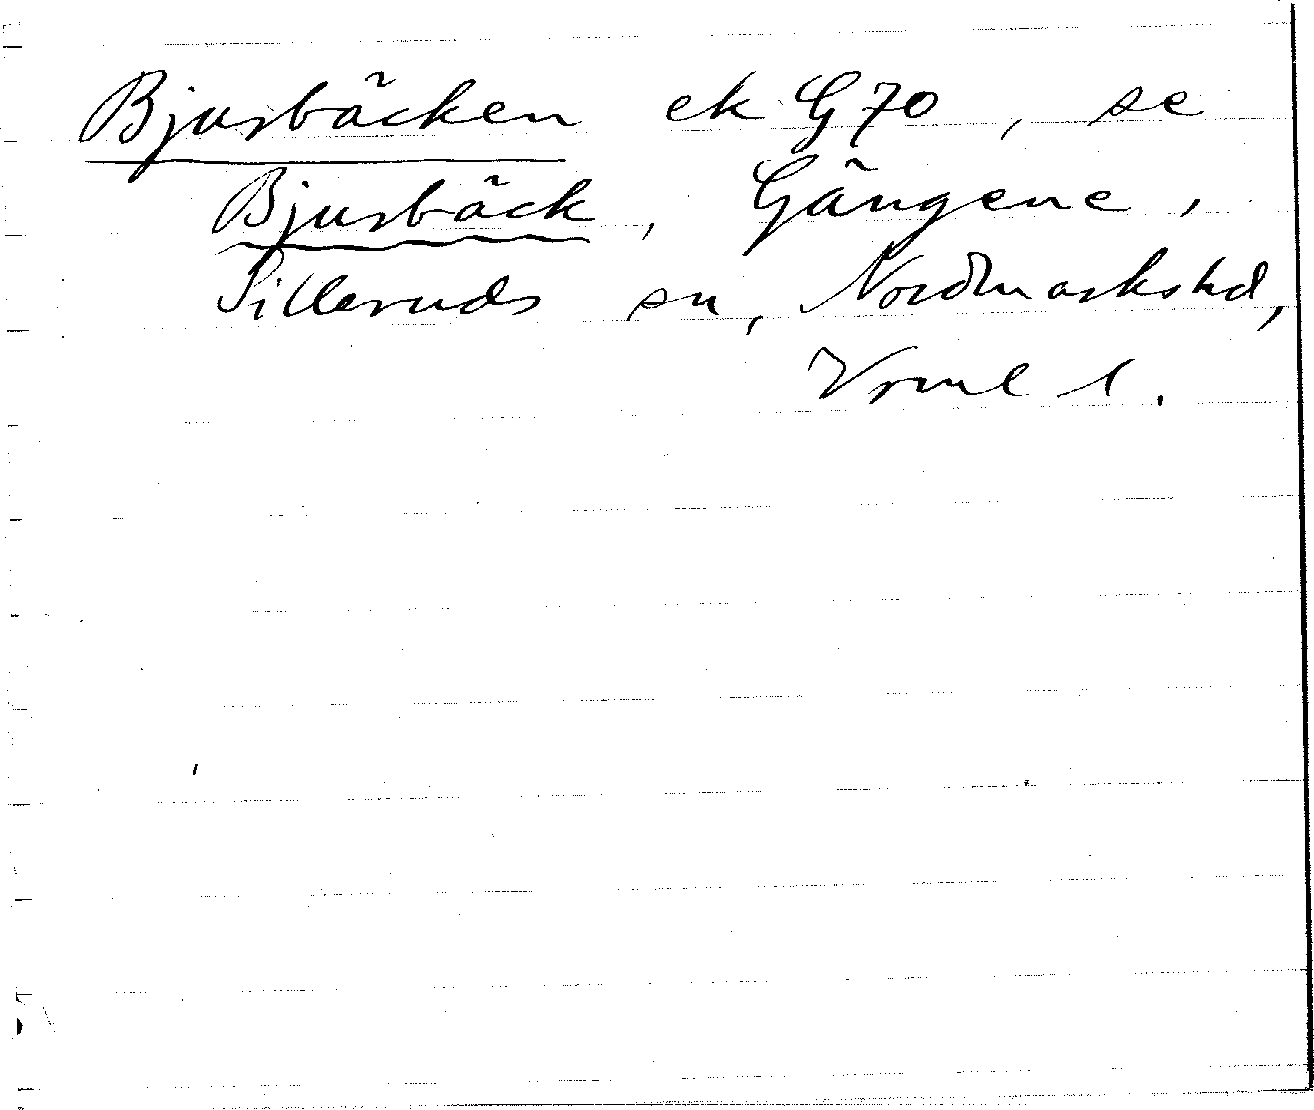 Bjusbäcken ek G70, se
Bjusbäck, Gängene,
Silleruds sn, Nordmarkshd,
Vrml l.